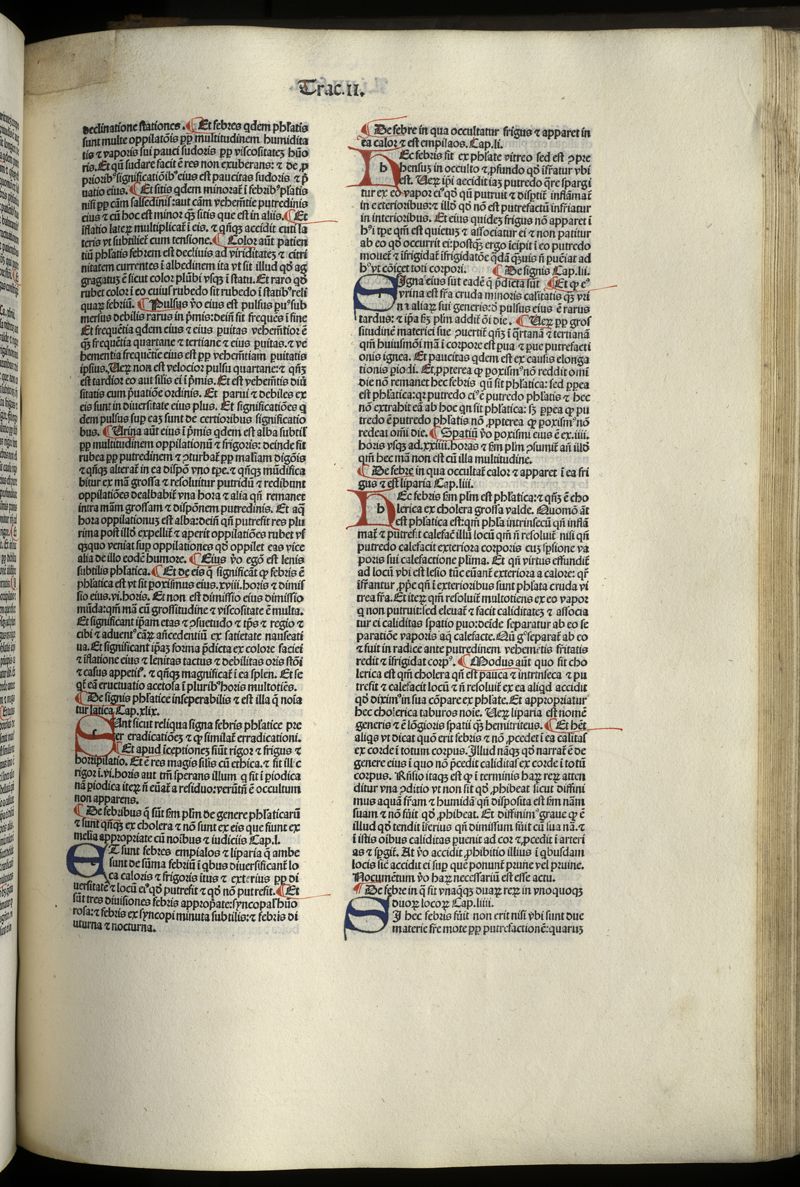 Trac.II.
declinatione stationes. ¶ Et febres qdem phl'atis
sunt multe oppilatōis ꝓp multitudinem humidita
tis ⁊ vaporis sui pauci sudoris ꝓp viscositatez hūo
ris. Et qn̄ sudare facit ē res non exuberans: ⁊ de ꝓ
prioribꝰ significatōibꝰ eius est paucitas sudoris ⁊ p̄
uatio eius. ¶ Et sitis qdem minorat̄ i febribꝰ pl'atis
nisi ꝓp cām salcedinis: aut cām vehemētie putredinis
eius ⁊ cū hoc est minor qȝ sitis que est in aliis. ¶ Et
īflatio laterȝ multiplicat̄ i eis. ⁊ qn̄qȝ accidit cuti la
teris vt subtiliet̄ cum tensione. ¶ Color aūt patien
tiū phl'atis febrem est decliuis ad viriditatez ⁊ citri
nitatem currentes i albedinem ita vt sit illud qd̄ ag
gragatuȝ ē sicut color plūbi vsqȝ i statu. Et raro qd̄
rubet color i eo cuiuſ rubedo sit rubedo i statibꝰ reli
quaꝝ febriū. ¶ Pulsus v̄o eius est pulsus puꝰ sub
mersus debilis rarus in p̄mis: dein̄ sit frequēs i fine
Et frequētia qdem eius ⁊ eius puitas vehemētior ē
qȝ frequētia quartane ⁊ tertiane ⁊ eius puitas. ⁊ ve
hementia frequētie eius est ꝓp vehemētiam puitatis
ipsius. Veꝝ non est velocior pulsu quartane: ⁊ qn̄qȝ
est tardior eo aut silis ei i p̄mis. Et est vehemētis diū
sitatis cum p̄uatiōe ordinis. Et parui ⁊ debiles ex
eis sunt in diuersitate eius plus. Et significatiōes q̄
dem pulsus sup eaȝ sunt de certioribus significatio
bus. ¶ Urina aūt eius i p̄mis qdem est alba subtil'
ꝓp multitudinem oppilationū ⁊ frigoris: deinde sit
rubea ꝓp putredinem ⁊ ꝯturbat̄ ꝓp maliam digōis
⁊ qn̄qȝ alterat̄ in ea dispō vno tpe. ⁊ qn̄qȝ mūdifica
bitur ex mā grossa ⁊ resoluitur putridū ⁊ redibunt
oppilatiōes dealbabit̄ vna hora ⁊ alia qn̄ remanet
intra mām grossam ⁊ dispōnem putredinis. Et aqȝ
hora oppilationuȝ est alba: dein̄ qn̄ putresit res plu
rima post illd̄ expellit̄ ⁊ aperit oppilatiōes rubet vſ
qȝquo veniat sup oppilationes qd̄ oppilet eas vice
alia de illo eodē humore. ¶ Eius v̄o egō est lenis
subtilis phl'atica. ¶ Et de eis q̄ significāt ꝙ febris ē
phl'atica est vt sit poximus eius .xviii. horis ⁊ dimis
sio eius .vi. horis. Et non est dimissio eius dimissio
mūda: qm̄ mā cū grossitudine ⁊ viscositate ē multa.
Et significant ip̄am etas ⁊ ꝯsuetudo ⁊ tp̄s ⁊ regio ⁊
cibi ⁊ aduentꝰ cāꝝ an̄cedentiū ex satietate nauseati
ua. Et significant ip̄aȝ forma p̄dicta ex colore faciei
⁊ īflatione eius ⁊ lenitas tactus ⁊ debilitas oris stōi
⁊ casus appetiꝰ. ⁊ qn̄qȝ magnificat̄ i ea splen. Et se
qt̄ eā eructuatio acetosa i pluribꝰ horis multotiēs.
¶ De signis phl'atice inseperabilis ⁊ est illa q̄ noīa
tur latica Cap.xlix.
SAnt sicut reliqua signa febris phl'atice pre
ter eradicatiōeȝ ⁊ ꝙ similat̄ erradicationi.
¶ Et apud īceptionez siūt rigor ⁊ frigus ⁊
horripilatio. Et ē res magis silis cū ethica. ⁊ sit ill'c
rigor i .vi. horis aut tm̄ sperans illum q̄ sit i piodica
nā piodica iteꝝ ē eūat̄ a residuo: verūtn̄ ē occultum
non apparens.
¶ De febribus q̄ sūt ẜm plīm de genere phl'aticarū
⁊ sunt qn̄qȝ ex cholera ⁊ nō sunt ex eis que siunt ex
melia appropriate cū noibus ⁊ iudiciis Cap.l.
ET sunt febres empialos ⁊ liparia q̄ ambe
sunt de sūma febriū i qbus diuersificant̄ lo
ca caloris ⁊ frigoris ītus ⁊ exterius ꝓp di
uersitatē ⁊ locū eiꝰ qd̄ putresit ⁊ qd̄ nō putresit. ¶ Et
sūt tres diuisiones febris approp̄ate: syncopal' hūo
rosa: ⁊ febris ex syncopi minuta subtilis: ⁊ febris di
uturna ⁊ nocturna.
¶ De febre in qua occultatur frigus ⁊ apparet in
ea calor ⁊ est empilaos. Cap.li.
HEc febris sit ex phl'ate vitreo sed est ꝯpre
hensuȝ in occulto ⁊ ꝓfundo qd̄ īfratur vbi
est. Veꝝ ip̄i accidit iaȝ putredo q̄re spargi
tur ex eo vapor eiꝰ qd̄ qn̄ putruit ⁊ disptit̄ inflāmat̄
in exterioribus: ⁊ illd̄ qd̄ nō est putrefactū infriatur
in interioribus. Et eius quidez frigus nō apparet i
hꝰi tpe qm̄ est quietuȝ ⁊ associatur ei ⁊ non patitur
ab eo qd̄ occurrit ei: postqȝ ergo īcipit i eo putredo
mouet̄ ⁊ īfrigidat̄ īfrigidatōe qdā quiī n̄ puēiat ad
hꝰ vt cōicet toti corpori. ¶ De signis Cap.lii.
SIgna eius sūt eadē q̄ p̄dicta sūt ¶ Et ꝙ eꝰ
vrina est fr̄a cruda minoris caliditatis qȝ vri
n ⁊ aliaꝝ sui generis: ⁊ pulsus eius ē rarus
tardus: ⁊ ip̄a ẜm plīm addit̄ oī die. ¶ Veꝝ ꝓp gros
situdinē materiei sue ꝯuertit̄ qn̄qȝ i q̄rtanā ⁊ tertianā
qm̄ huiusmōi mā i corpore est pua ⁊ pue putrefacti
onis ignea. Et paucitas qdem est ex causis elonga
tionis piodi. Et ꝓpterea ꝙ poximꝰ nō reddit omī
die nō remanet hec febris qn̄ sit phl'atica: sed ꝓpea
est phl'atica: qꝛ putredo eiꝰ ē putredo phl'atis ⁊ hec
nō extrahit eā ab hoc qn̄ sit phl'atica: sȝ ꝓpea ꝙ pu
tredo ē putredo phl'atis nō ꝓpterea ꝙ poximꝰ nō
redeat omī die. ¶ Spatiū v̄o poximi eius ē ex .iiii.
horis vsqȝ ad .xxiiii. horas ⁊ ẜm plīm ꝯsumit̄ an̄ illd̄
qm̄ hec mā non est cū illa multitudine.
¶ De febre in qua occultat̄ calor ⁊ apparet i ea fri
gus ⁊ est liparia Cap.liii.
HEc febris ẜm plīm est phl'atica: ⁊ qn̄qȝ ē cho
lerica ex cholera grossa valde. Quomō āt
est phl'atica est: qm̄ phl'a intrinsecū qn̄ inflā
mat̄ ⁊ putresit calefac̄ illū locū qm̄ n̄ resoluit̄ nisi qn̄
putredo calefacit exteriora corporis cuȝ spl̄ione va
poris sui calefactione plima. Et qn̄ virtus effundit̄
ad locū vbi est lesio tūc euant̄ exteriora a calore: qꝛ
īfrāntur ꝓpe qn̄ i exterioribus sunt phl'ata cruda vi
trea fr̄a. Et iteꝝ qm̄ resoluit̄ multotiens ex eo vapor
q̄ non putruit: led eleuat̄ ⁊ facit caliditatez ⁊ associa
tur ei caliditas spatio puo: deīde separatur ab eo se
paratiōe vaporis aq̄ calefacte. Qn̄ gꝰ separat̄ ab eo
⁊ fuit in radice ante putredinem vehemētis frītatis
redit ⁊ īfrigidat corpꝰ. ¶ Modus aūt quo sit cho
lerica est qm̄ cholera qn̄ est pauca ⁊ intrinseca ⁊ pu
tresit ⁊ calefacit locū ⁊ n̄ resoluit̄ ex ea aliqd accidit
qd̄ diximꝰ in sua cōpare ex phl'ate. Et appropriatur
hec cholerica taburos noīe. Veꝝ liparia est nomē
generis ⁊ ē lōgioris spatii qȝ hemitriteus. ¶ Et h̄et
aliqs vt dicat quō erit febris ⁊ nō ꝓcedet i ea calitas
ex corde i totum corpus. Illud nāqȝ qd̄ narrat̄ ē de
genere eius i quo nō p̄cedit caliditas ex corde i totū
corpus. Rn̄sio itaqȝ est ꝙ i terminis haꝝ reꝝ atten
ditur vna ꝯditio vt non sit qd̄ ꝓhibeat sicut diffini
mus aquā fr̄am ⁊ humidā qn̄ disposita est ẜm nām
suam ⁊ nō sn̄it qd̄ ꝓhibeat. Et diffinimꝰ graue ꝙ ē
illud qd̄ tendit īferius qn̄ dimissum suīt cū sua nā. ⁊
i istis oībus caliditas puenit ad cor ⁊ ꝓcedit i arteri
as ⁊ spgit̄. At v̄o accidit ꝓhibitio illius i qbusdam
locis sic accidit ei sup que ponunt̄ prune vel pruine.
Nocumētum v̄o haꝝ necessariū est esse actu.
¶ De febre in q̄ sit vnaqueqȝ duaꝝ reꝝ in vnoquoqȝ
duoꝝ locoꝝ Cap.liiii.
SI hec febris sn̄it non erit nisi vbi sunt due
materie fr̄e mote ꝓp putrefactionē: quaruȝ